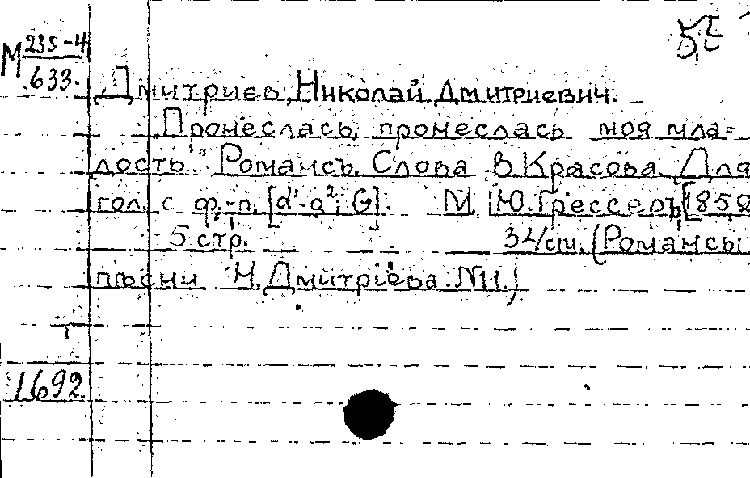 М 235-4
633.
Дмитриев, Николай Дмитриевич.
"Пронеслась, пронеслась моя мла-
дость". Романсъ. Слова В. Красова. Для
гол. с ф.-п. [d¹-g²; G]. М. Ю. Грессеръ, [1858
5 стр. 34 cm. (Романсы
пѣсни Н. Дмитріева. №11.)
1692.